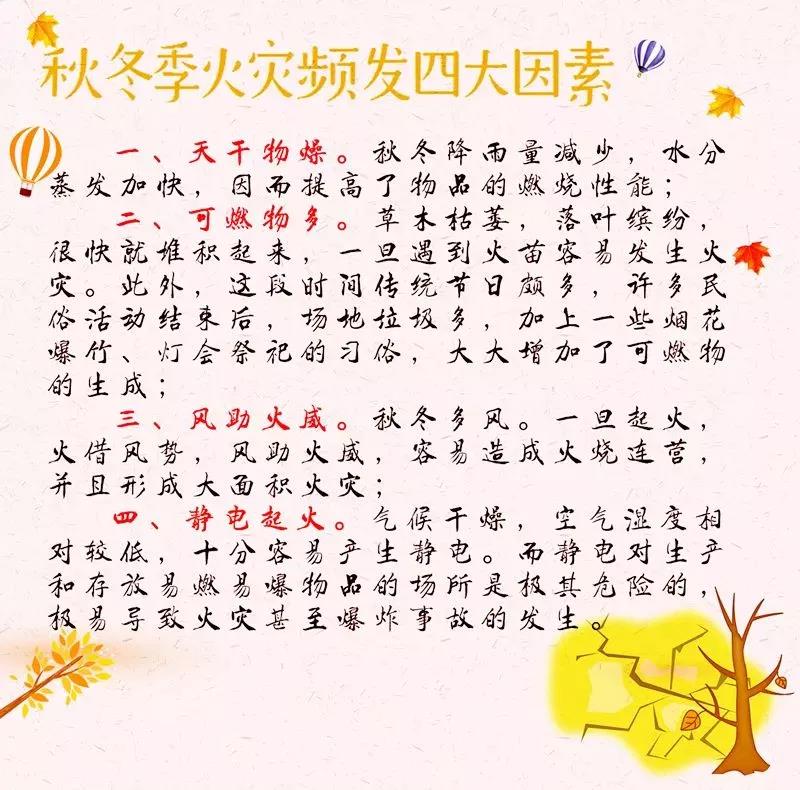 秋冬季火灾频发四大因素
一、天干物燥。秋冬降雨量减少，水分
蒸发加快，因而提高了物品的燃烧性能；
二、可燃物多。草木枯萎，落叶缤纷，
很快就堆积起来，一旦遇到火苗容易发生火
灾。此外，这段时间传统节日颇多，许多民
俗活动结束后，场地垃圾多，加上一些烟花
爆竹、灯会祭祀的习俗，大大增加了可燃物
的生成；
三、风助火威。秋冬多风。一旦起火，
火借风势，风助火威，容易造成火烧连营，
并且形成大面积火灾；
四、静电起火。气候干燥，空气湿度相
对较低，十分容易产生静电。而静电对生产
和存放易燃易爆物品的场所是极其危险的，
极易导致火灾甚至爆炸事故的发生。